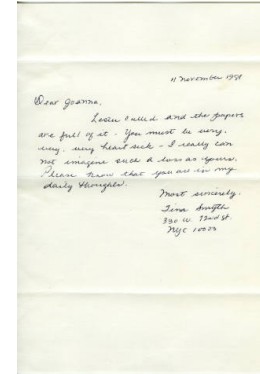 11 November 1978
Dear Joanna,
called and the papers
are full of it. You must be very,
very, very heart sick - I really can
not imagine such a loss as yours.
Please know that you are in my
daily thoughts.
Most sincerely,
Tina Smyth
330 W. 72nd St.
NYC 10023